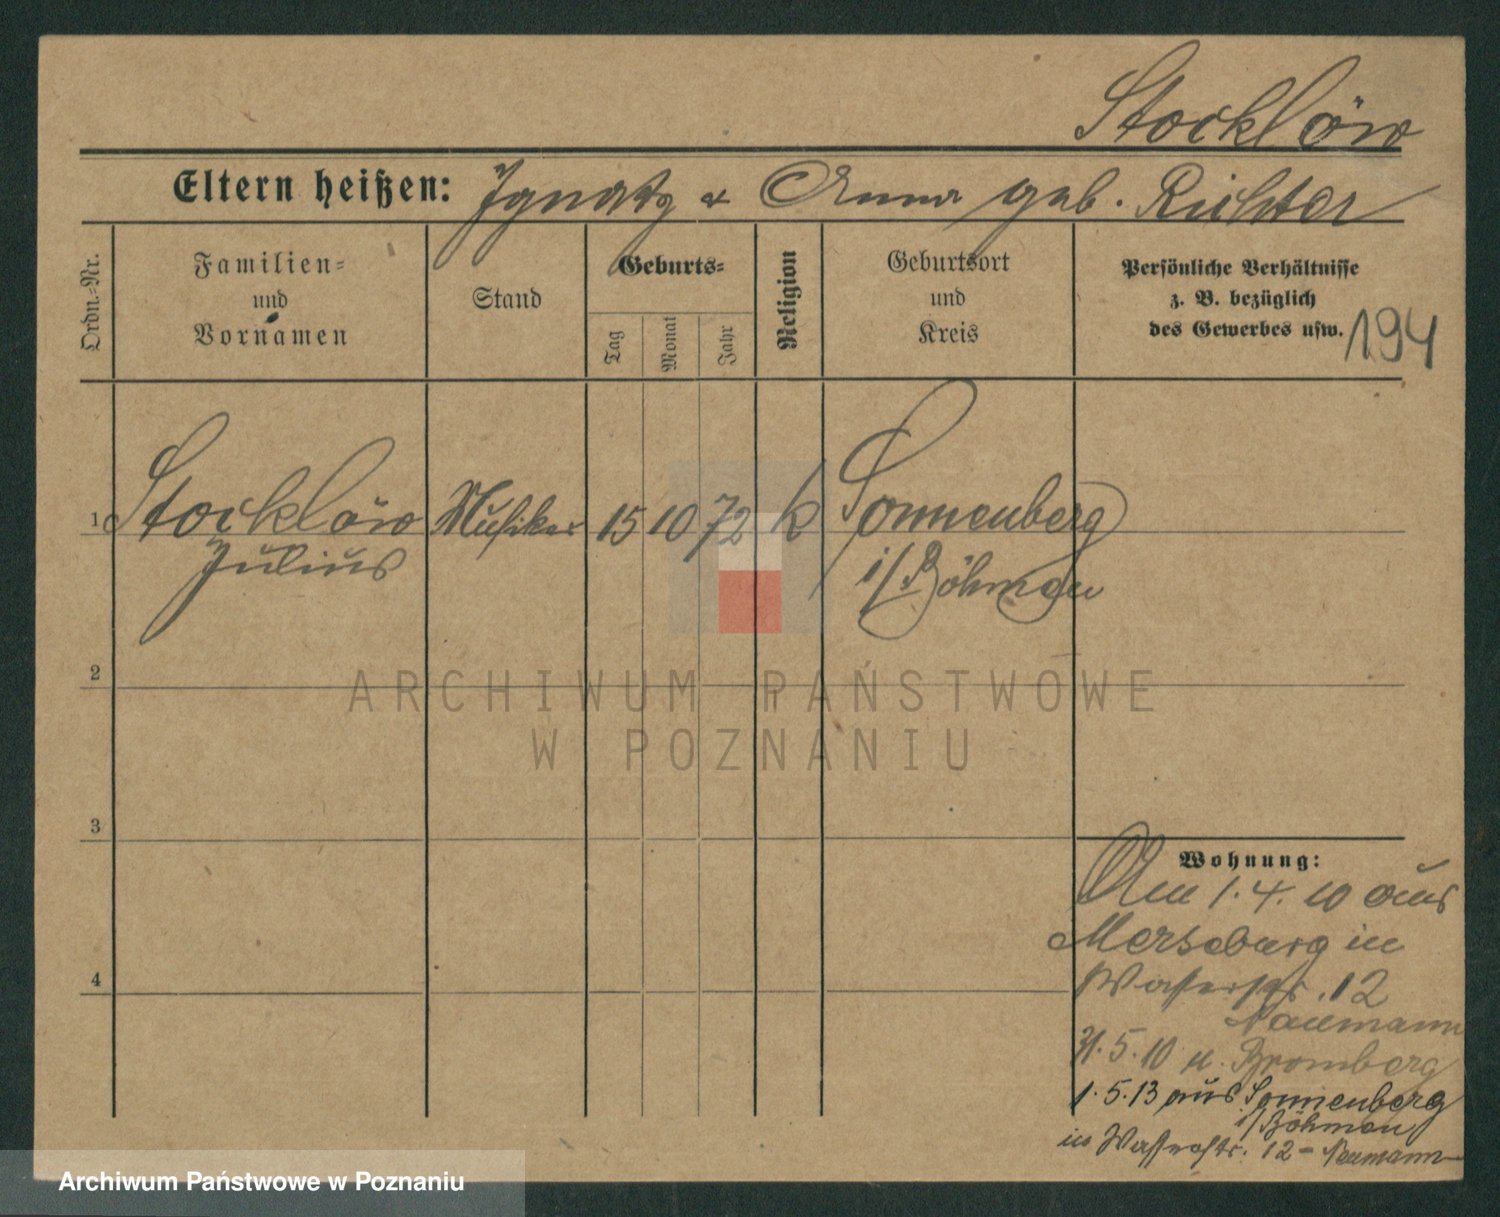 Stocklöw
Eltern heißen: Ignatz & Anna geb. Richter
Ordn.-Nr.
Familien-
und
Vornamen
Stand
Geburts-
Tag
Monat
Jahr
Religion
Geburtsort
und
Kreis
Persönliche Verhältnisse
z. B. bezüglich
des Gewerbes usw.
194
1 Stocklöw Musiker 15 10 72 k Sonnenberg
Julius i/Böhmen
2
3
4
Wohnung:
Am 1.4.10 aus
Merseburg in
Wasserstr. 12
Naumann
31.5.10 n. Bromberg
1.5.13 aus Sonnenberg
i/Böhmen
in Wasserstr. 12 - Naumann
ARCHIWUM PAŃSTWOWE
W POZNANIU
Archiwum Państwowe w Poznaniu